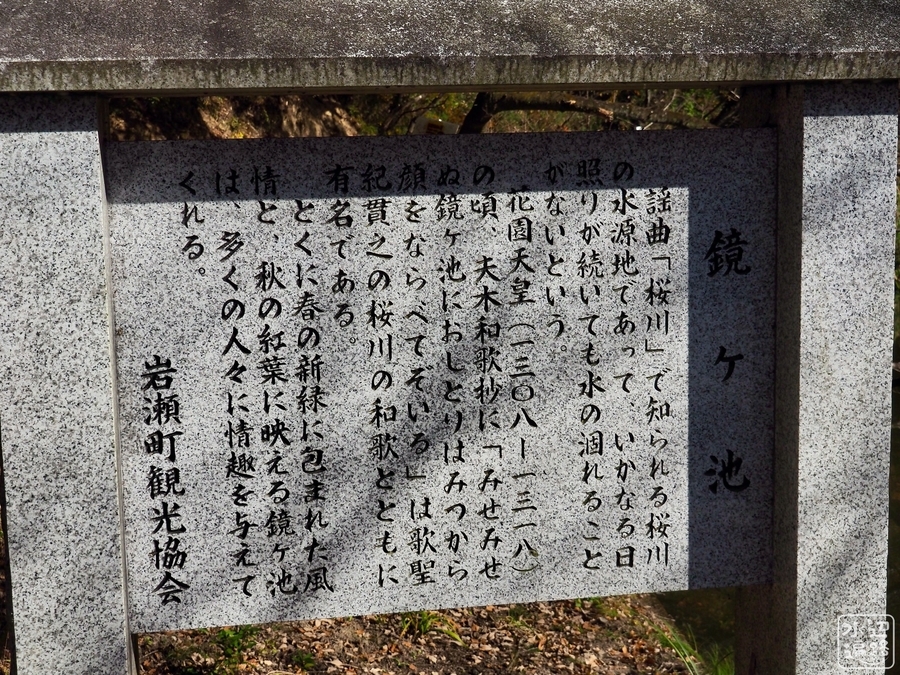 鏡ヶ池
謡曲「桜川」で知られる桜川
の水源地であって、いかなる日
照りが続いても水の涸れること
がないという。
花園天皇(一三〇八ー一三一八)
の頃、夫木和歌抄に「みせみせ
ぬ鏡ヶ池におしとりはみつから
顔をならべてぞいる」は歌聖
紀貫之の桜川の和歌とともに
有名である。
とくに春の新緑に包まれた風
情と、秋の紅葉に映える鏡ヶ池
は、多くの人々に情趣を与えて
くれる。
岩瀬町観光協会